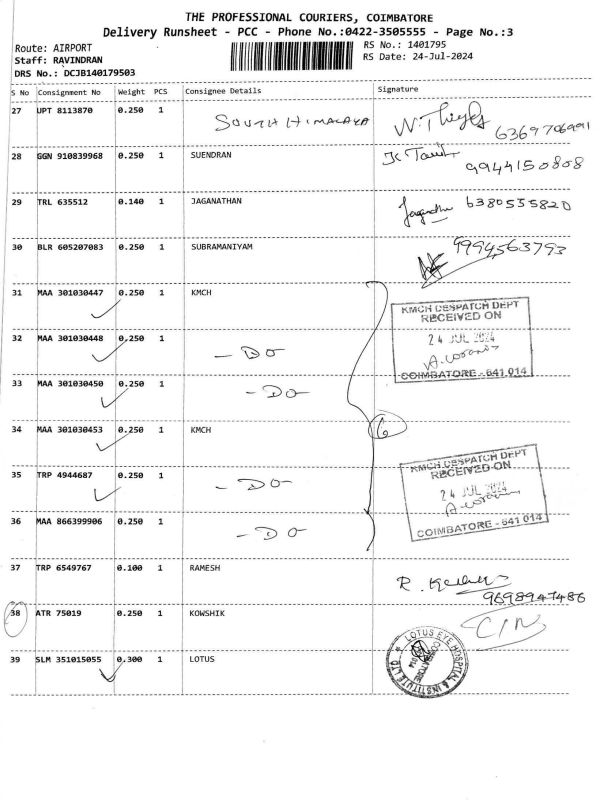 THE PROFESSIONAL COURIERS, COIMBATORE
Delivery Runsheet - PCC - Phone No.:0422-3505555 - Page No.:3
Route: AIRPORT
RS No.: 1401795
Staff: RAVINDRAN
RS Date: 24-Jul-2024
DRS No.: DCJB140179503
S No Consignment No Weight PCS Consignee Details Signature
27 UPT 8113870 0.250 1 SOUTH HIMALAYA
6369706991
28 GGN 910839968 0.250 1 SUENDRAN
9944150808
29 TRL 635512 0.140 1 JAGANATHAN Jaganathan 6380555820
30 BLR 605207083 0.250 1 SUBRAMANIYAM 9994563793
31 MAA 301030447 0.250 1 KMCH
KMCH DESPATCH DEPT
RECEIVED ON
32 MAA 301030448 0.250 1 - DO -
24 JUL 2024
33 MAA 301030450 0.250 1 - DO -
COIMBATORE - 641 014
34 MAA 301030453 0.250 1 KMCH 6
KMCH DESPATCH DEPT
RECEIVED ON
35 TRP 4944687 0.250 1 - DO -
24 JUL 2024
36 MAA 866399906 0.250 1 - DO -
COIMBATORE - 641 014
37 TRP 6549767 0.100 1 RAMESH
9698947486
38 ATR 75019 0.250 1 KOWSHIK C/N
39 SLM 351015055 0.300 1 LOTUS
LOTUS EYE HOSPITAL & INSTITUTE LTD
COIMBATORE